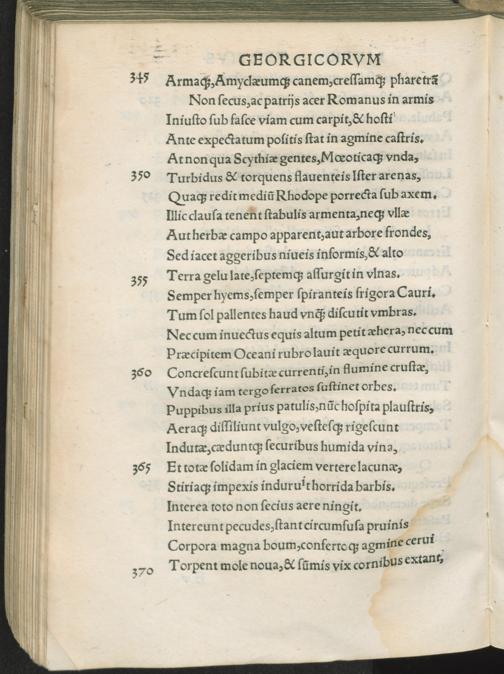 GEORGICORVM
345 Armaq;, Amyclæumq; canem, cressamq; pharetrã
Non secus, ac patrijs acer Romanus in armis
Iniusto sub fasce viam cum carpit, & hosti
Ante expectatum positis stat in agmine castris.
At non qua Scythiæ gentes, Mœoticaq; vnda,
350 Turbidus & torquens flauenteis Ister arenas,
Quaq; redit mediũ Rhodope porrecta sub axem.
Illic clausa tenent stabulis armenta, neq; vllæ
Aut herbæ campo apparent, aut arbore frondes,
Sed iacet aggeribus niueis informis, & alto
355 Terra gelu late, septemq; assurgit in vlnas.
Semper hyems, semper spiranteis frigora Cauri.
Tum sol pallentes haud vnq; discutit vmbras.
Nec cum inuectus equis altum petit æhera, nec cum
Præcipitem Oceani rubro lauit æquore currum.
360 Concrescunt subitæ currenti, in flumine crustæ,
Vndaq; iam tergo ferratos sustinet orbes.
Puppibus illa prius patulis, nũc hospita plaustris,
Aeraq; dissiliunt vulgo, vestesq; rigescunt
Indutæ, cæduntq; securibus humida vina,
365 Et totæ solidam in glaciem vertere lacunæ,
Stiriaq; impexis induruit horrida barbis.
Interea toto non secius aere ningit.
Intereunt pecudes, stant circumfusa pruinis
Corpora magna boum, confertoq; agmine cerui
370 Torpent mole noua, & sũmis vix cornibus extant,